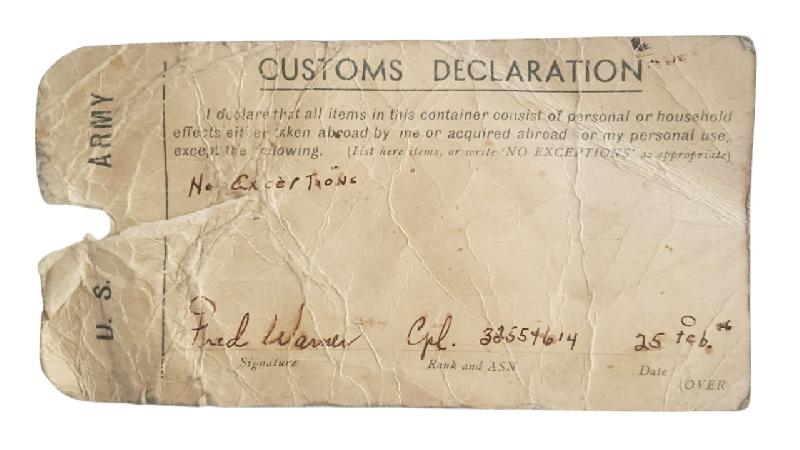 U. S. ARMY
CUSTOMS DECLARATION
I declare that all items in this container consist of personal or household
effects either taken abroad by me or acquired abroad for my personal use,
except the following. (List here items, or write "NO EXCEPTIONS" as appropriate)
No Exceptions
Fred Warner Cpl. 33554614 25 Feb. 46
Signature Rank and ASN Date
(OVER